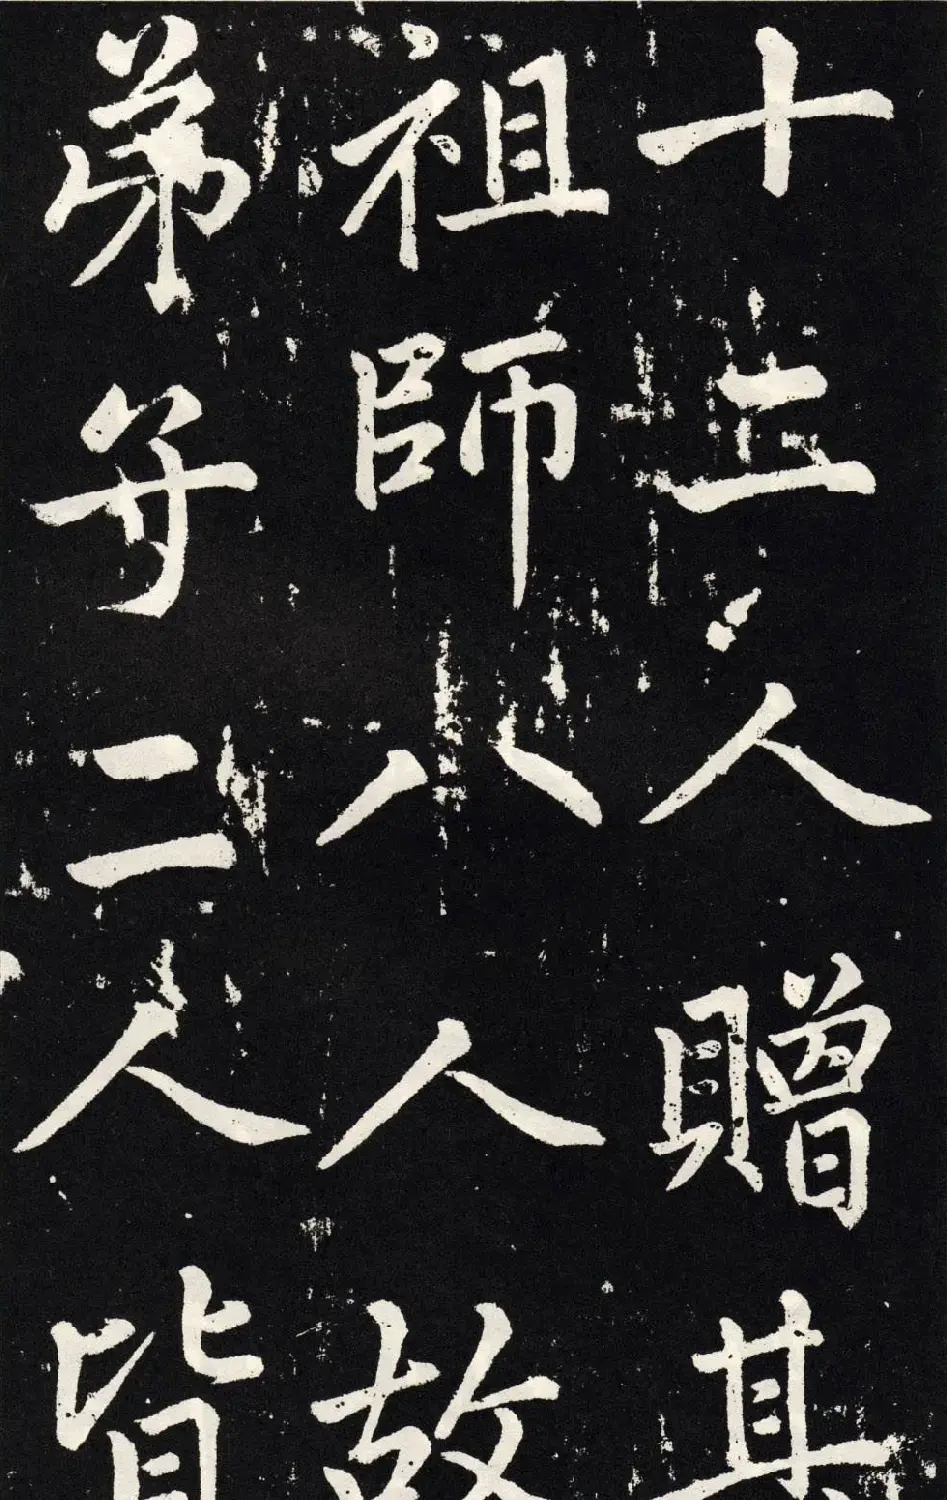 十人贈其
祖師八人故
弟等二人皆